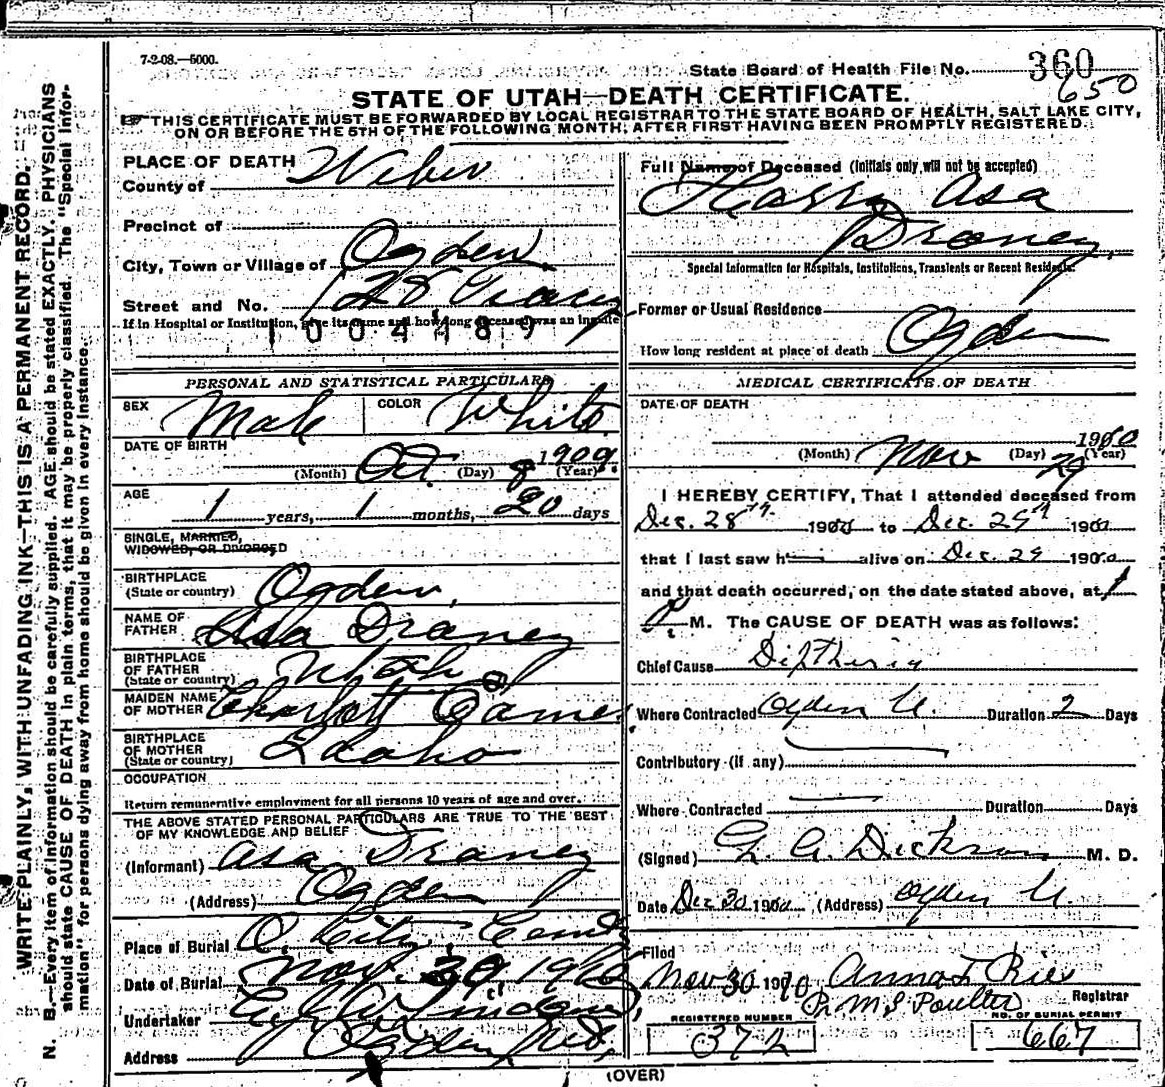 7-2-08.—5000.
State Board of Health File No. 360
650
STATE OF UTAH—DEATH CERTIFICATE.
THIS CERTIFICATE MUST BE FORWARDED BY LOCAL REGISTRAR TO THE STATE BOARD OF HEALTH, SALT LAKE CITY,
ON OR BEFORE THE 5TH OF THE FOLLOWING MONTH, AFTER FIRST HAVING BEEN PROMPTLY REGISTERED.
WRITE PLAINLY, WITH UNFADING INK—THIS IS A PERMANENT RECORD.
N. B.—Every item of information should be carefully supplied. AGE should be stated EXACTLY. PHYSICIANS
should state CAUSE OF DEATH in plain terms, that it may be properly classified. The "Special Infor-
mation" for persons dying away from home should be given in every instance.
PLACE OF DEATH
County of Weber
Precinct of
City, Town or Village of Ogden
Street and No. 128
If in Hospital or Institution, give its name and how long deceased was an inmate
1004489
PERSONAL AND STATISTICAL PARTICULARS
SEX Male COLOR White
DATE OF BIRTH
(Month) Oct (Day) 8 1909. (Year)
AGE
1 years, 1 months, 20 days
SINGLE, MARRIED,
WIDOWED, OR DIVORCED
BIRTHPLACE
(State or country) Ogden
NAME OF
FATHER Asa Draney
BIRTHPLACE
OF FATHER
(State or country) Utah
MAIDEN NAME
OF MOTHER Charlott
BIRTHPLACE
OF MOTHER
(State or country) Idaho
OCCUPATION
Return remunerative employment for all persons 10 years of age and over.
THE ABOVE STATED PERSONAL PARTICULARS ARE TRUE TO THE BEST
OF MY KNOWLEDGE AND BELIEF
(Informant) Asa Draney
(Address) Ogden
Place of Burial O. City Cem
Date of Burial Nov. 30, 1910
Undertaker
Address Ogden
Full Name of Deceased (Initials only will not be accepted)
Harry Asa
Draney
Special Information for Hospitals, Institutions, Transients or Recent Residents.
Former or Usual Residence
How long resident at place of death Ogden
MEDICAL CERTIFICATE OF DEATH
DATE OF DEATH
(Month) Nov (Day) 29 1910 (Year)
I HEREBY CERTIFY, That I attended deceased from
Dec. 28th 1910 to Dec. 29th 1910
that I last saw h alive on Dec. 29 1910
and that death occurred, on the date stated above, at 1
P. M. The CAUSE OF DEATH was as follows:
Chief Cause Diftheria
Where Contracted Ogden U. Duration 2 Days
Contributory (if any)
Where Contracted Duration Days
(Signed) A. Dickson M. D.
Date Dec 30 1910 (Address) Ogden U.
Filed
Nov 30 1910 Anna Rice
Pr M S Poulter Registrar
REGISTERED NUMBER
372
NO. OF BURIAL PERMIT
667
(OVER)